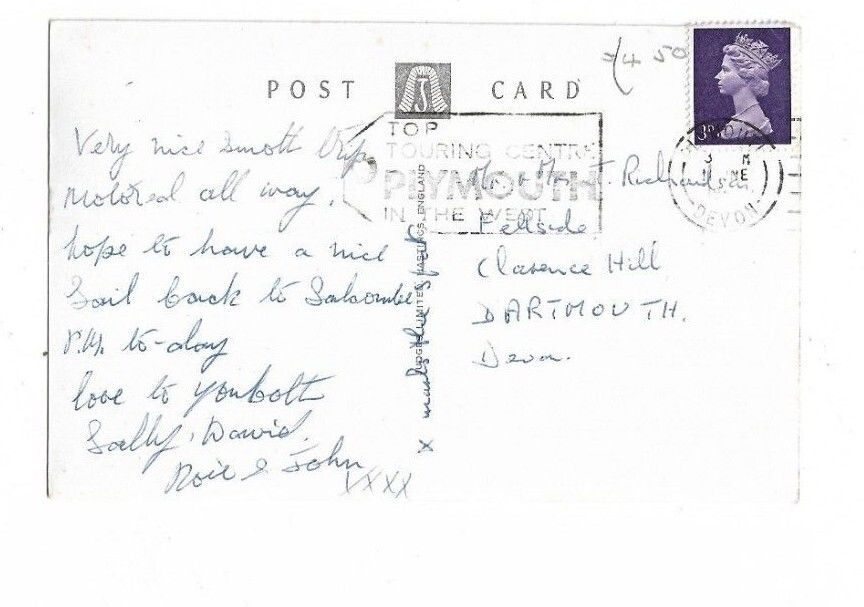 POST CARD
J
£4 50
3D
TOP
TOURING CENTRE
PLYMOUTH
IN THE WEST
DEVON
Very nice smott trip
Motored all way,
hope to have a nice
Sail back to Salcombe
P.M. to-day
love to you both
Sally, David,
Rosie & John
XXXX
X marks the spot
JUDGES LIMITED, HASTINGS, ENGLAND
Mr & Mrs J. Richardson,
Fellside,
Clarence Hill
DARTMOUTH.
Devon.